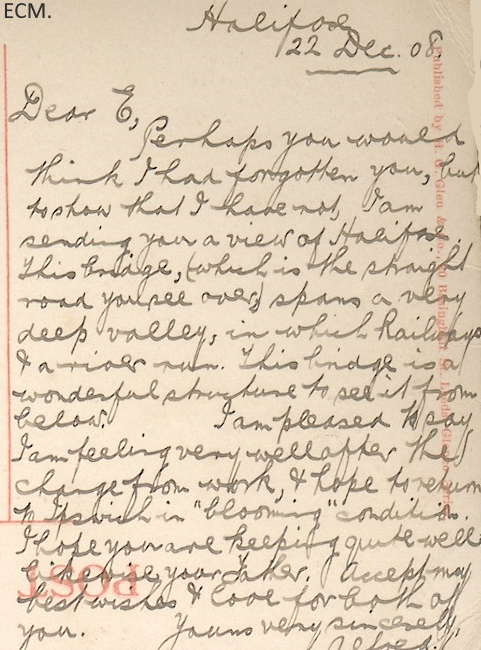 ECM.
Halifax
22 Dec. 08.
Dear E,
Perhaps you would
think I had forgotten you, but
to show that I have not, I am
sending you a view of Halifax.
This bridge, (which is the straight
road you see over,) spans a very
deep valley, in which Railways
& a river run. This bridge is a
wonderful structure to see it from
below. I am pleased to say
I am feeling very well after the
change from work, & hope to return
to Ipswich in "blooming" condition.
I hope you are keeping quite well
likewise your Father. Accept my
best wishes & love for both of
you. Yours very sincerely,
Alfred.
POST
Published by H. G. Glen & Co.,